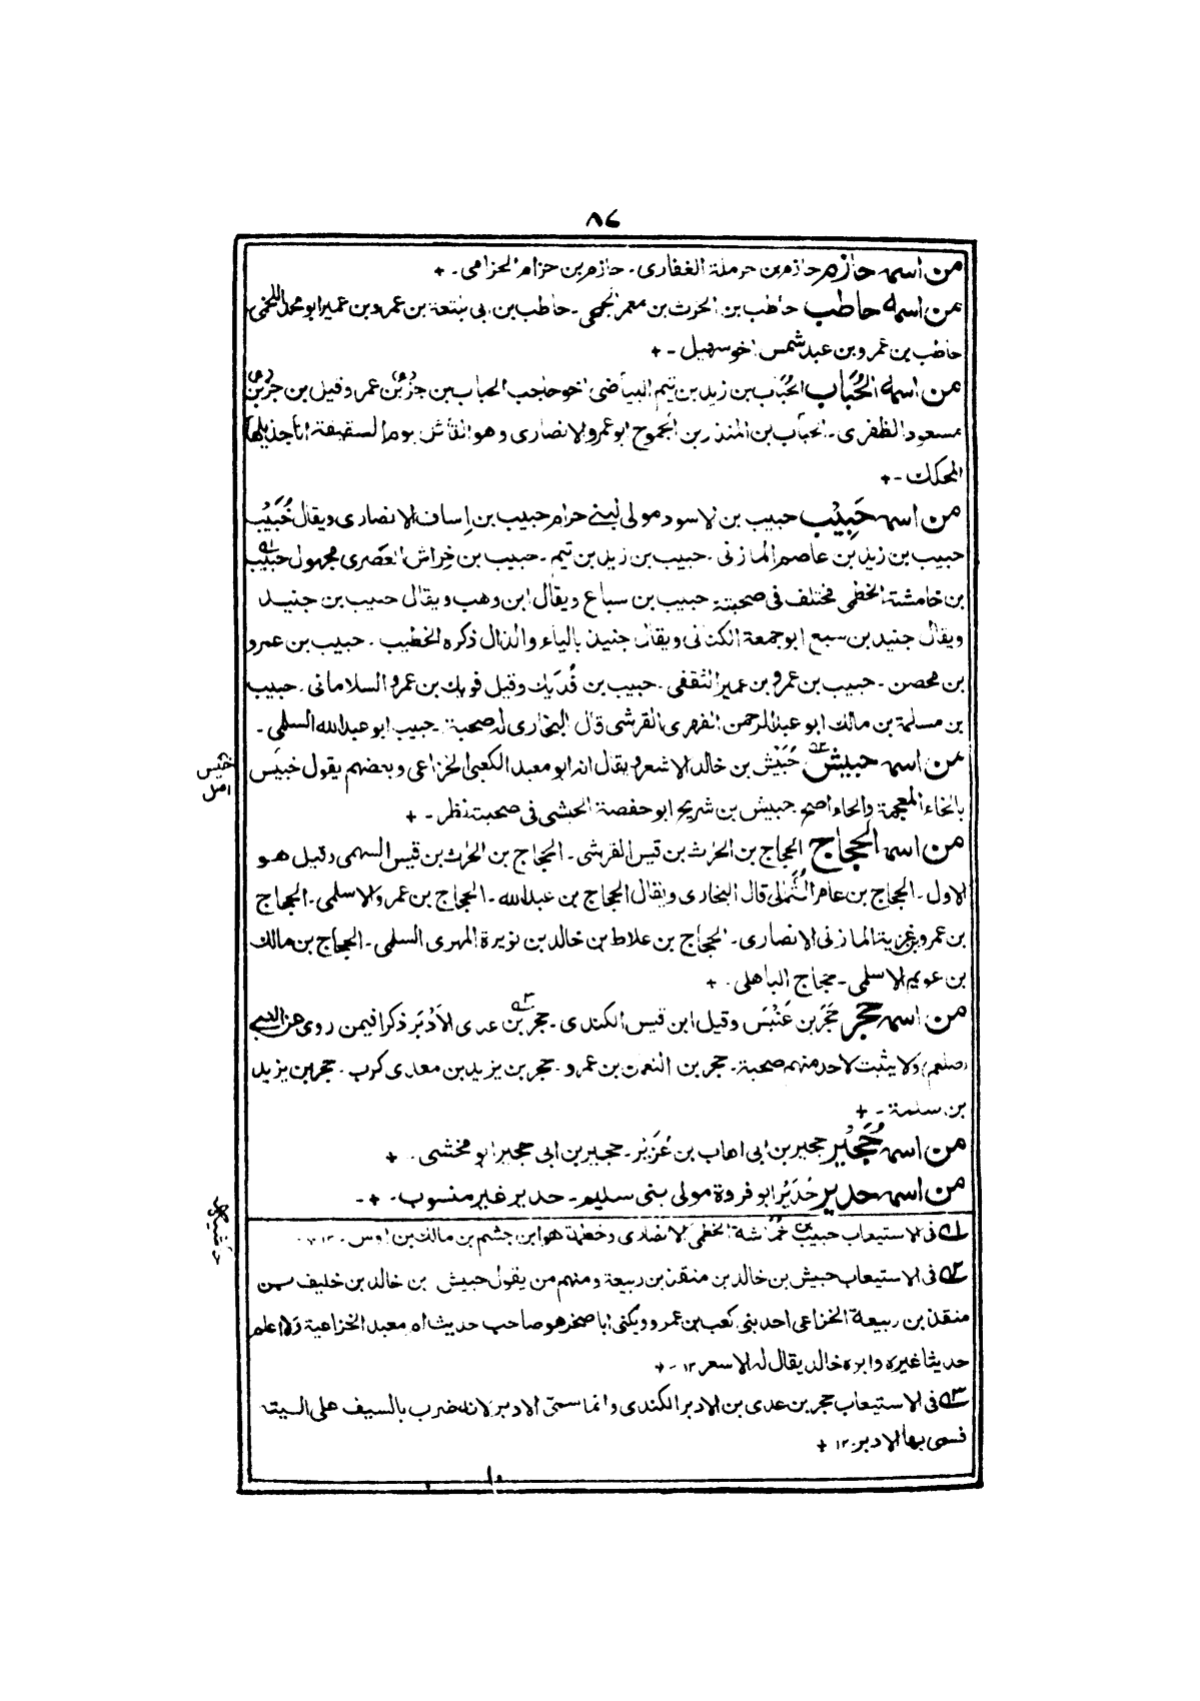 ٨٤
من اسمه حازم حازم بن حرملة الغفارى۔ حازم بن حزام الحزامى۔ +
من اسمه حاطب حاطب بن الحرث بن معمر الجمحى۔ حاطب بن ابى بلتعة بن عمرو بن عمير ابو محمد اللخمى۔
حاطب بن عمرو بن عبد شمس اخو سهيل۔ +
من اسمه الحُبَاب الحُبَاب بن زيد بن تيم البياضى اخو حاجب الحباب بن جزء بن عمر وقيل بن جزء بن
مسعود الظفرى۔ الحباب بن المنذر بن الجموح ابو عمرو الانصارى وهو القائل يوم السقيفة انا جذيلها
المحكك۔ +
من اسمه حَبِيْب حبيب بن الاسود مولى لبنى حرام حبيب بن اِساف الانصارى ويقال خُبَيْب
حبيب بن زيد بن عاصم المازنى۔ حبيب بن زيد بن تيم۔ حبيب بن خِراش العَصَرى مجهول حبيب
بن خامشة الخطمى مختلف فى صحبته حبيب بن سباع ويقال ابن وهب ويقال حبيب بن جنيد
ويقال جنيد بن سبع ابو جمعة الكنانى ويقال جنيذ بالياء والذال ذكره الخطيب۔ حبيب بن عمرو
بن محصن۔ حبيب بن عمرو بن عمير الثقفى۔ حبيب بن فُدَيك وقيل فويك بن عمرو السلامانى۔ حبيب
بن مسلمة بن مالك ابو عبد الرحمن الفهرى القرشى قال البخارى له صحبة۔ حبيب ابو عبد الله السلمى۔
من اسمه حبيش حُبَيْش بن خالد الاشعر ويقال انه ابو معبد الكعبى الخزاعى وبعضهم يقول خبيس
بالخاء المعجمة والحاء اصح حبيش بن شريح ابو حفصة الحبشى فى صحبته نظر۔ +
من اسمه الحجاج الحجاج بن الحرث بن قيس القرشى۔ الحجاج بن الحرث بن قيس السهمى وقيل هو
الاول۔ الحجاج بن عامر الثُّمالى قال البخارى ويقال الحجاج بن عبد الله۔ الحجاج بن عمرو الاسلمى۔ الحجاج
بن عمرو بن غزية المازنى الانصارى۔ الحجاج بن علاط بن خالد بن نويرة المهرى السلمى۔ الحجاج بن مالك
بن عويم الاسلمى۔ حجاج الباهلى۔ +
من اسمه حجر حُجْر بن عَنْبَس وقيل ابن قيس الكندى۔ حجر بن عدى الاَدْبَر ذكرا فيمن روى عن النبى
(صلعم) ولا يثبت لاحد منهم صحبة۔ حجر بن النعمن بن عمرو۔ حجر بن يزيد بن معدى كرب۔ حجر بن يزيد
بن سلمة۔ +
من اسمه حُجَيْر حجير بن ابى اهاب بن عُزَيْز۔ حجير بن ابى حجير ابو مخشى۔ +
من اسمه حدير حُدَيْر ابو فروة مولى بنى سليم۔ حدير غير منسوب۔ +۔
خنيس
اصل
حاشية
۱ فى الاستيعاب حبيب بن خُمَاشة الخطمى الانصارى وخطمة هو ابن جشم بن مالك بن اوس۔ ١٢۔
۲ فى الاستيعاب حبيش بن خالد بن منقذ بن ربيعة ومنهم من يقول حبيش بن خالد بن خليف بن
منقذ بن ربيعة الخزاعى احد بنى كعب بن عمرو ويكنى ابا صخر هو صاحب حديث ام معبد الخزاعية ولا اعلم له
حديثا غيره وابوه خالد يقال له الاسعر ١٢۔ +
۳ فى الاستيعاب حجر بن عدى بن الادبر الكندى وانما سمّى الادبر لانه ضرب بالسيف على اليته
فسمى بها الادبر ١٢ +